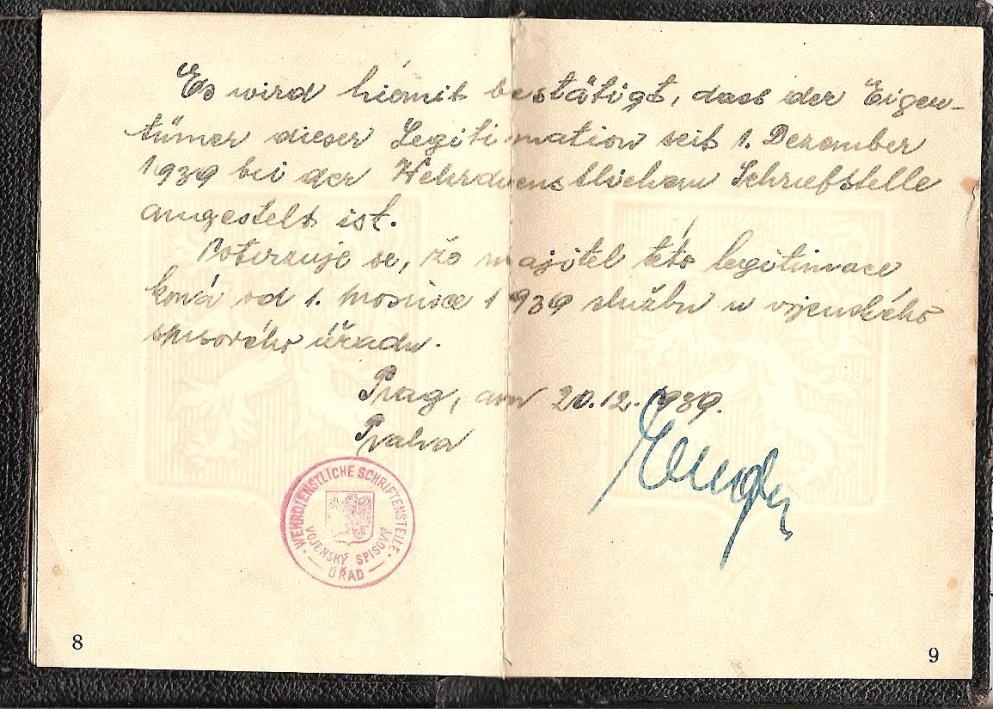 Es wird hiemit bestätigt, dass der Eigen-
tümer dieser Legitimation seit 1. Dezember
1939 bei der Wehrdienstlichen Schriefstelle
angestelt ist.
Potvrzuje se, že majitel této legitimace
koná od 1. prosince 1939 službu u vojenského
spisového úřadu.
Prag, am 20.12.1939.
Praha
WEHRDIENSTLICHE SCHRIFTENSTELLE
VOJENSKÝ SPISOVÝ
ÚŘAD
8
9